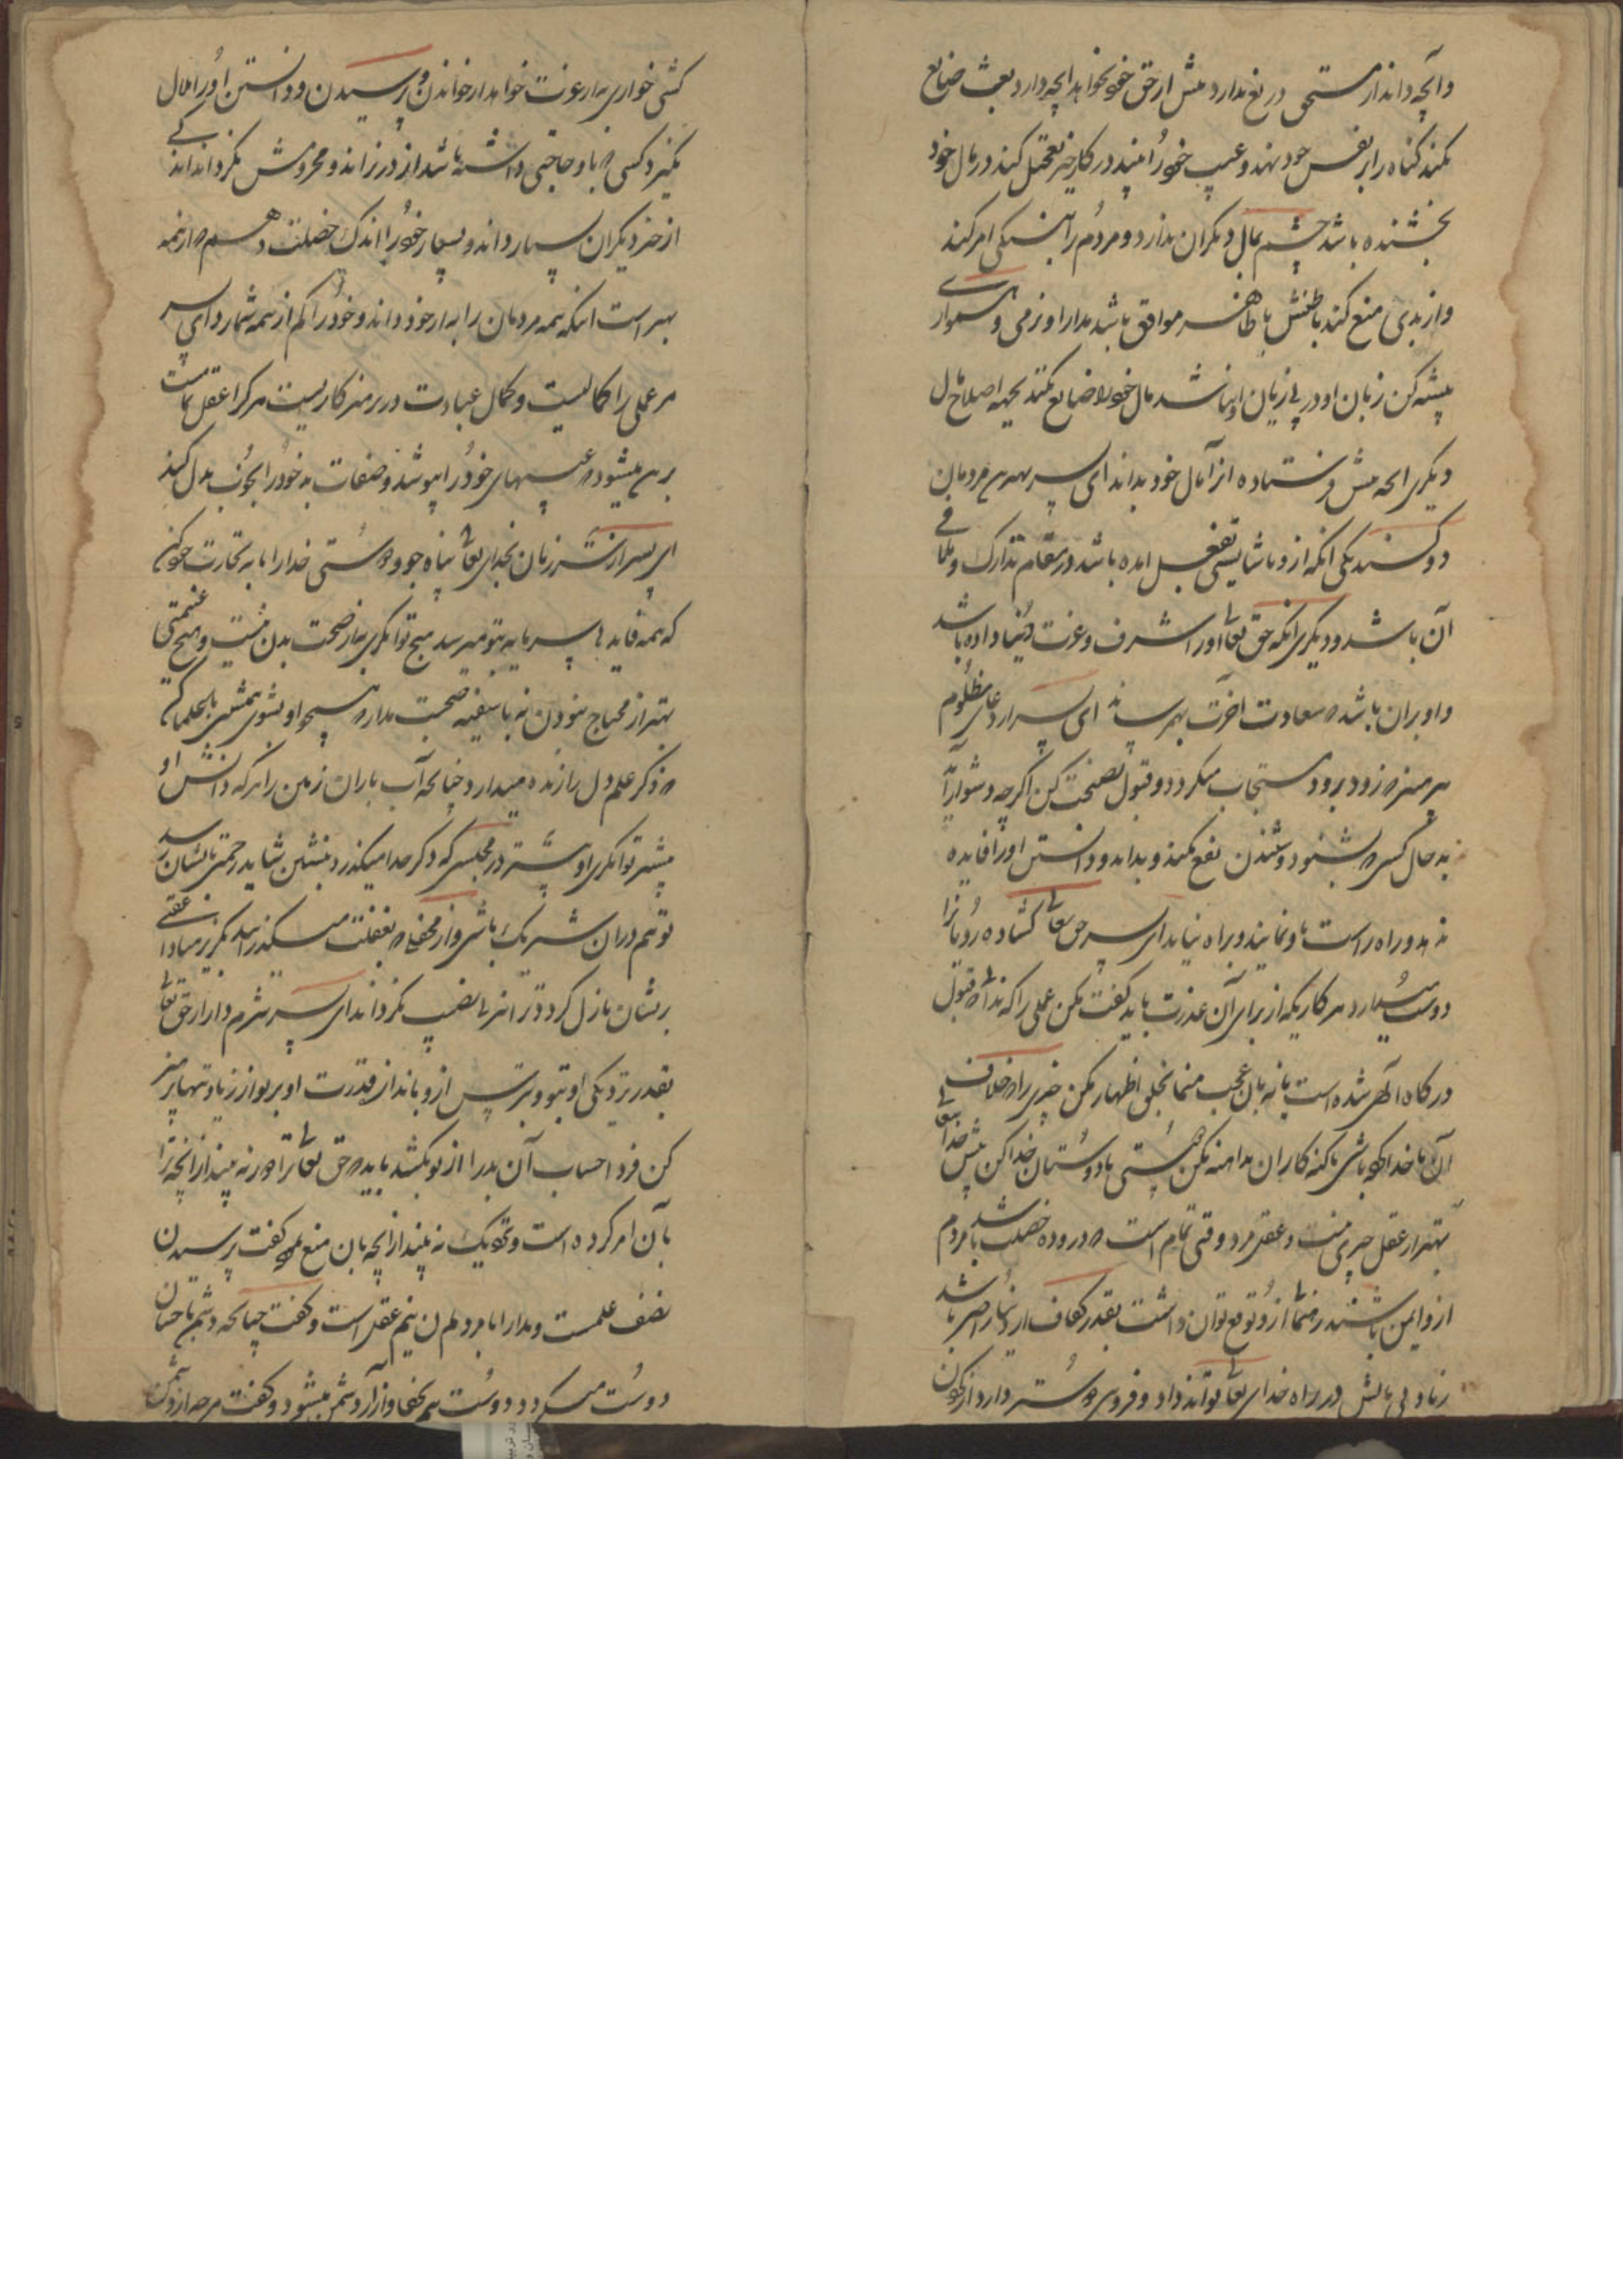 وآنچه داند از مستحق دریغ ندارد بیش از حق خود نخواهد آنچه دارد بعبث ضایع
نکند گناه را بر نفس خود نهد و عیب خود را بیند در کار خیر تعجیل کند در مال خود
بخشنده باشد چشم بمال دیگران ندارد و مردم را به نیکی امر کند
واز بدی منع کند باطنش با ظاهر موافق باشد مدارا و نرمی و همواری
پیشه کن زبان او در پی زیان او نباشد مال خود را ضایع نکند بجهة اصلاح مال
دیگری آنچه پیش فرستاده از آمال خود بداند ای پسر بهترین مردمان
دو کسند یکی آنکه ازو ناشایستی بفعل آمده باشد در مقام تدارک و تلافی
آن باشد و دیگری آنکه حق تعالی او را شرف و عزت دنیا داده باشد
و او بران باشد که سعادت آخرت بهم رساند ای پسر از دعای مظلوم
بپرهیز که زود بزود مستجاب میگردد و قبول نصیحت کن اگرچه دشوار آید
بد حال کسی که بشنود و شنیدن نفع نکند و بداند و دانستن او را فایده
ندهد و راه راست باو نمایند و براه نیاید ای پسر حق تعالی گشاده رویانرا
دوست میدارد هر کاریکه از برای آن عذرت باید گفت مکن عملی را که ندانی قبول
درگاه الهی شده است یا نه بان عجب منما بخلق اظهار مکن چیزی را که خلاف
آن با خدا گوباشی با گنه کاران مداهنه مکن دوستی با دوستان خدا کن پیش خدا تعالی
بهتر از عقل چیزی نیست و عقل مرد وقتی تمام است که درو ده خصلت باشد مردم
ازو ایمن باشند رضا ازو توقع توان داشت بقدر کفاف از دنیا راضی باشد
زیادتی مالش در راه خدای تعالی تواند داد و فروتنی دوستر دارد از گردن
کشی خواری به از عزت خواهد از خواندن و پرسیدن و دانستن او را ملال
نگیرد کسی که باو حاجتی داشته باشد از در نراند و محرومش نگرداند اندکی
از خیر دیگران بسیار داند و بسیار خود را اندک خصلت دهم که از همه
بهتر است اینکه همه مردمان را به از خود داند و خود را کم از همه شمارد ای پسر
هر عملی را کمالیست و کمال عبادت در پرهیزکاریست هر کرا عقل تمامست
برین میشود که عیبهای خود را بپوشد و صفات بد خود را بخوب بدل کند
ای پسر از شر زنان بخدای تعالی پناه جو و دوستی خدا را مایه تجارت خود کن
که همه فایده بی سرمایه بتو میرسد هیچ توانگری به از صحت بدن نیست و هیچ غنیمتی
بهتر از محتاج نبودن نه با سفیه صحبت مدار که همچو او بشوی همنشین با حکما کن
که ذکر علم دل را زنده میدارد چنانچه آب باران زمین را هر که دانش او
بیشتر توانگری او بیشتر در مجلسی که ذکر خدا میگذرد بنشین شاید رحمتی بایشان رسد
تو هم دران شریک باشی و از محفلی که بغفلت میگذرانند بگریز مبادا غضبی
بریشان نازل گردد ترا نیز بی نصیب نگرداند ای پسر شرم دار از حق تعالی
بقدر نزدیکی او بتو و بترس ازو باندازه قدرت او بر تو از زیادتیها پرهیز
کن فردا حساب آن بد را از تو بکشند باید که حق تعالی ترا دور نه بیند از آنچه ترا
بآن امر کرده است و نزدیک نه بیند از آنچه بان منع نموده گفت پرسیدن
نصف علمست و مدارا با مردم نیم عقل است و گفت چنانچه دشمن باحسان
دوست میگردد دوست هم بجفا و آزار دشمن میشود و گفت هر چه از دشمن